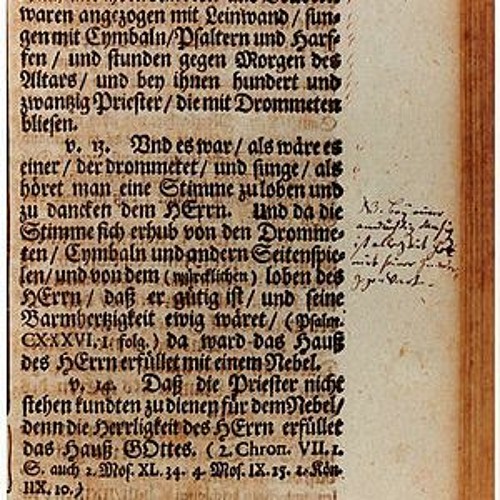 waren angezogen mit Leinwand / sun-
gen mit Cymbaln / Psaltern und Harf-
fen / und stunden gegen Morgen des
Altars / und bey ihnen hundert und
zwantzig Priester / die mit Drommeten
bliesen.
v. 13. Und es war / als wäre es
einer / der drommetet / und sunge / als
höret man eine Stimme zu loben und
zu dancken dem HErrn. Und da die
Stimme sich erhub von den Dromme-
ten / Cymbaln und andern Seitenspie-
len / und von dem (würcklichen) loben des
HErrn / daß er gütig ist / und seine
Barmhertzigkeit ewig wäret / (Psalm.
CXXXVI. 1. folg.) da ward das Hauß
des HErrn erfüllet mit einem Nebel.
v. 14. Daß die Priester nicht
stehen kundten zu dienen für dem Nebel /
denn die Herrligkeit des HErrn erfüllet
das Hauß GOttes. (2. Chron. VII. 1.
S. auch 2. Mos. XL. 34. 4. Mos. IX. 15. 1. Kön.
IIX. 10.)
NB. bey einer
andächtig
ist allezeit Gott
mit seiner